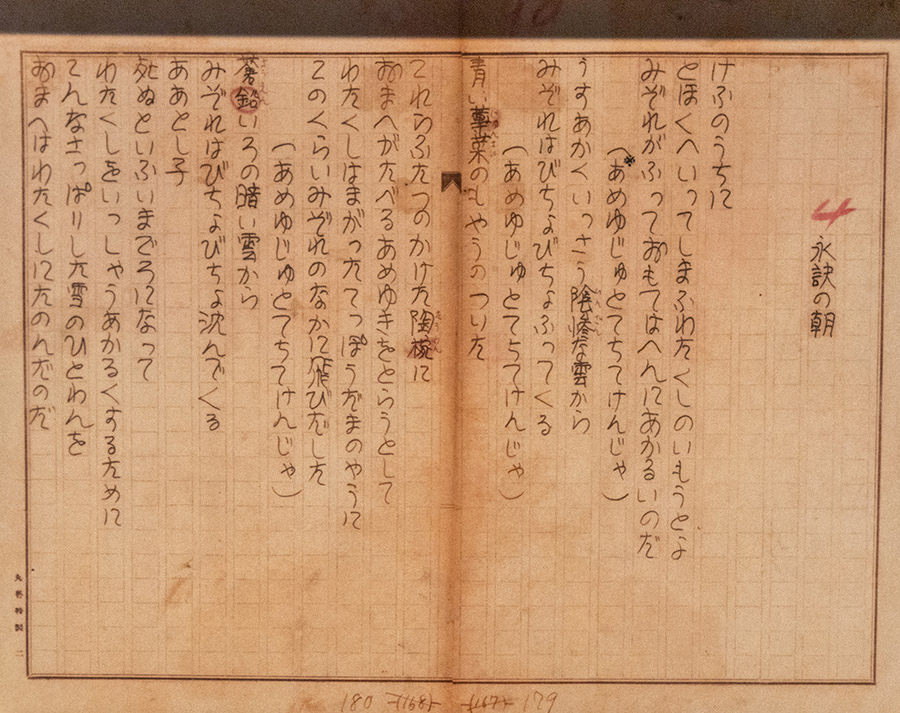 4
永訣の朝
けふのうちに
とほくへいってしまふわたくしのいもうとよ
みぞれがふっておもてはへんにあかるいのだ
※(あめゆじゅとてちてけんじゃ)
うすあかくいっさう陰惨な雲から
みぞれはびちょびちょふってくる
(あめゆじゅとてちてけんじゃ)
青い蓴菜のもやうのついた
これらふたつのかけた陶椀に
おまへがたべるあめゆきをとらうとして
わたくしはまがったてっぽうだまのやうに
このくらいみぞれのなかに飛びだした
(あめゆじゅとてちてけんじゃ)
蒼鉛いろの暗い雲から
みぞれはびちょびちょ沈んでくる
ああとし子
死ぬといふいまごろになって
わたくしをいっしゃうあかるくするために
こんなさっぱりした雪のひとわんを
おまへはわたくしにたのんだのだ
179
180